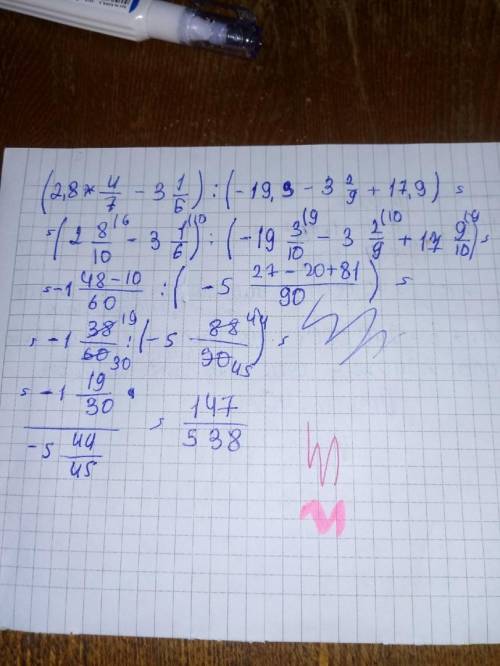 (2,8 * 4/7 - 3 1/6) : (-19,3 - 3 2/9 + 17,9) =
=(2 8/10 (6 - 3 1/6 (10) : (-19 3/10 (9 - 3 2/9 (10 + 17 9/10 (9) =
= -1 48-10/60 : ( -5 27-20+81/90 ) =
= -1 38 19/60 30 : (-5 88 44/90 45) =
= -1 19/30 / -5 44/45 = 147/538